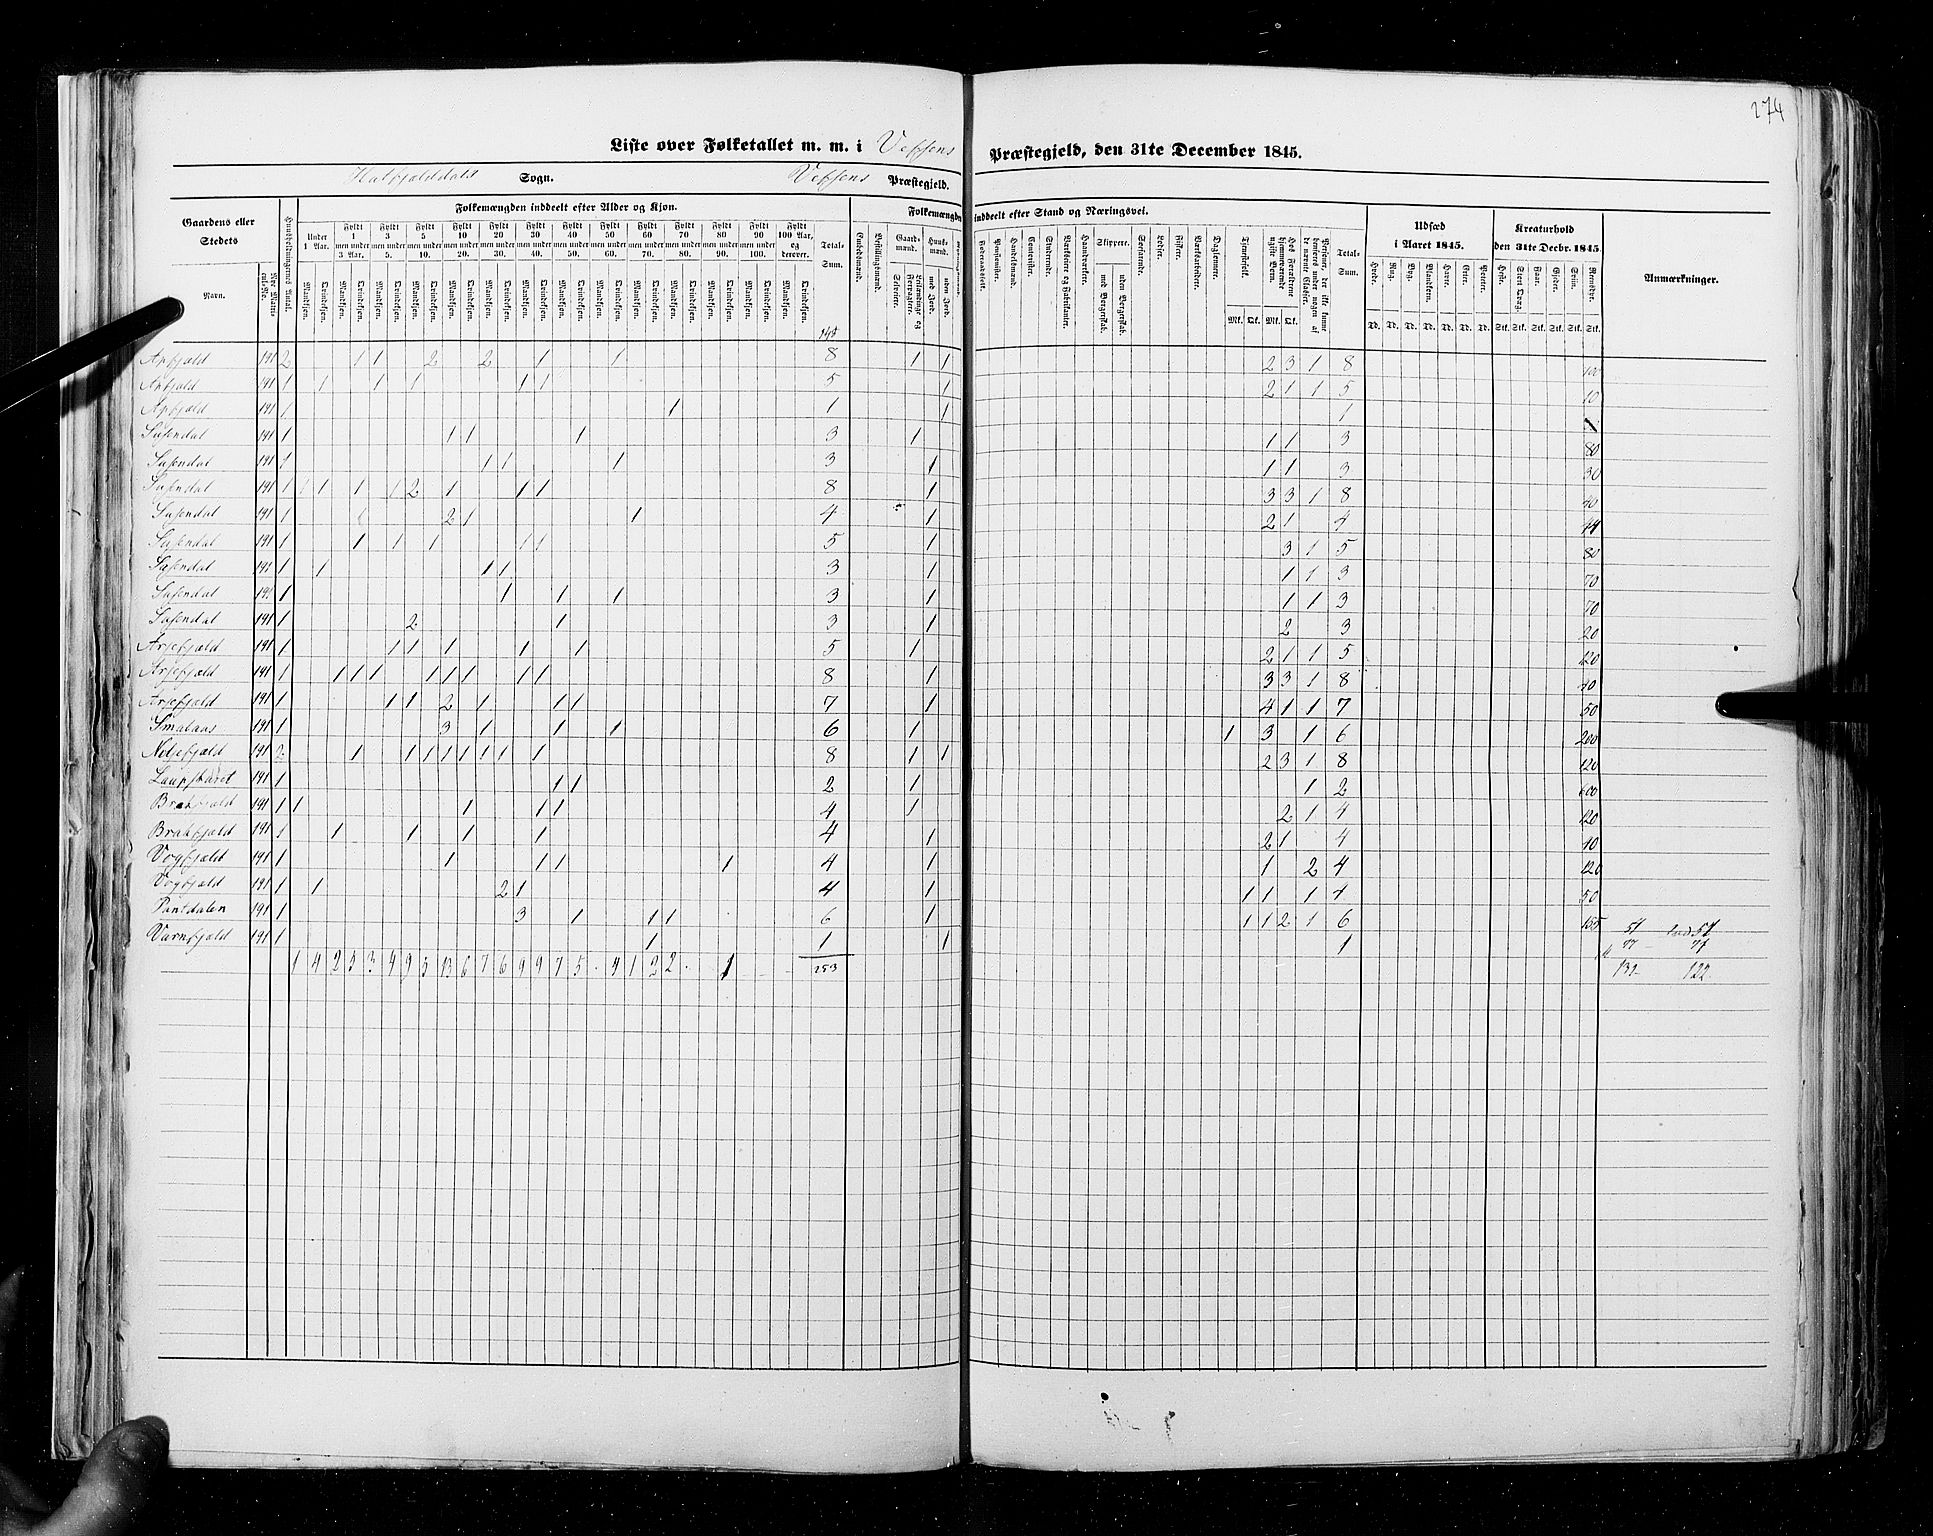 274
Liste over Folketallet m. m. i Vefsens Præstegjeld, den 31te December 1845.
Hatfjelddals Sogn. Vefsens Præstegjeld.
Gaardens eller Stedets Navn.
Nye Matricul-No.
Huusholdningernes Antal.
Folkemængden inddeelt efter Alder og Kjøn.
Under 1 Aar. Fyldt 1 men under 3 Aar. Fyldt 3 men under 5. Fyldt 5 men under 10. Fyldt 10 men under 20. Fyldt 20 men under 30. Fyldt 30 men under 40. Fyldt 40 men under 50. Fyldt 50 men under 60. Fyldt 60 men under 70. Fyldt 70 men under 80. Fyldt 80 men under 90. Fyldt 90 men under 100. Fyldt 100 Aar, og derover. Total-Sum.
Mandkjøn. Qvindekjøn.
Folkemængden inddeelt efter Stand og Næringsvei.
Embedsmænd. Bestillingsmænd. Gaardmænd. Selveiere. Leilændinge og Forpagtere. Huusmænd. med Jord. uden Jord.
Føderaadsfolk. Pensionister. Handelsmænd. Contorister. Studerende. Værkseiere og Fabrikanter. Haandværkere. Skippere. med Borgerskab. uden Borgerskab. Søefarende. Lodser. Fiskere. Værksarbeidere. Daglønnere. Tjenestefolk. Mk. Qk. Hos Forældrene hjemmeværende ugifte Børn. Mk. Qk. Personer, der ikke kunne henføres under nogen af de nævnte Classer. Total-Sum.
Udsæd i Aaret 1845.
Hvede. Rug. Byg. Blandkorn. Havre. Erter. Poteter.
Td. Td. Td. Td. Td. Td. Td.
Kreaturhold den 31te Decbr. 1845.
Heste. Stort Qvæg. Faar. Gjeder. Sviin. Rensdyr.
Stk. Stk. Stk. Stk. Stk. Stk.
Anmærkninger.
Apfjeld 191 2 1 1 2 2 1 1 8 1 1 2 3 1 8 100
Apfjeld 191 1 1 1 1 1 1 5 1 2 1 1 5 10
Apfjeld 191 1 1 1 1 1
Susendal 191 1 1 1 1 3 1 1 1 3 80
Susendal 191 1 1 1 1 3 1 1 1 3 30
Susendal 191 1 1 1 1 1 2 1 1 1 8 1 3 3 1 8 40
Susendal 191 1 2 1 1 4 1 2 1 4
Susendal 191 1 1 1 1 1 1 5 1 3 1 5 80
Susendal 191 1 1 1 1 3 1 1 1 3 70
Susendal 191 1 1 1 1 3 1 1 1 3 70
Susendal 191 1 2 1 3 1 2 3 20
Arsefjeld 191 1 1 1 1 1 1 5 1 2 1 1 5 120
Arsefjeld 191 1 1 1 1 1 1 1 1 1 8 1 3 3 1 8 40
Arsefjeld 191 1 1 1 2 1 1 1 7 1 4 1 1 7 50
Smalaas 191 1 3 1 1 1 6 1 1 3 1 6 200
191 2 1 1 1 1 1 1 1 1 8 1 1 2 3 1 8 120
191 1 1 1 2 1 1 2 600
Brakfjeld 191 1 1 1 1 1 4 1 2 1 4 120
Brakfjeld 191 1 1 1 1 1 4 1 2 1 4 40
Vogfjeld 191 1 1 1 1 1 4 1 1 2 4 120
Vogfjeld 191 1 1 2 1 4 1 1 1 1 4 50
Pantdalen 191 1 3 1 1 1 6 1 1 1 2 1 6 155
Varnfjeld 191 1 1 1 1 1
1 4 2 5 3 4 9 5 13 6 7 6 9 9 7 5 . 4 1 2 2 . 1 253
122